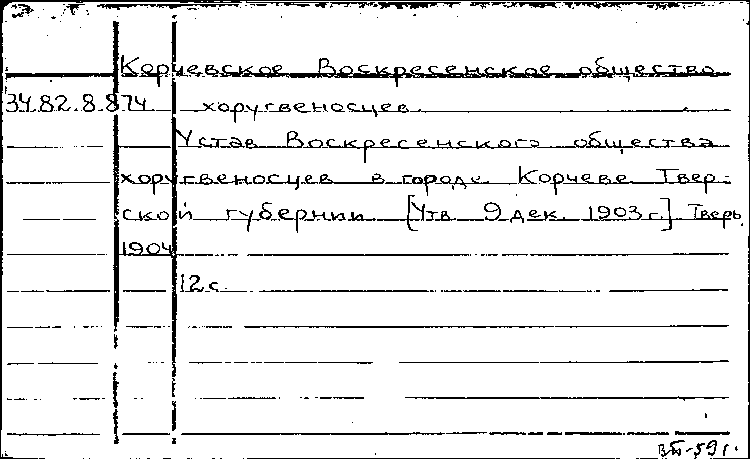 Корчевское Воскресенское общество
34.82.8.874 хоругвеносцев.
Устав Воскресенского общества
хоругвеносцев в городе Корчеве Твер-
ской губернии [Утв. 9 дек. 1903 г.] Тверь,
1904
12 с.